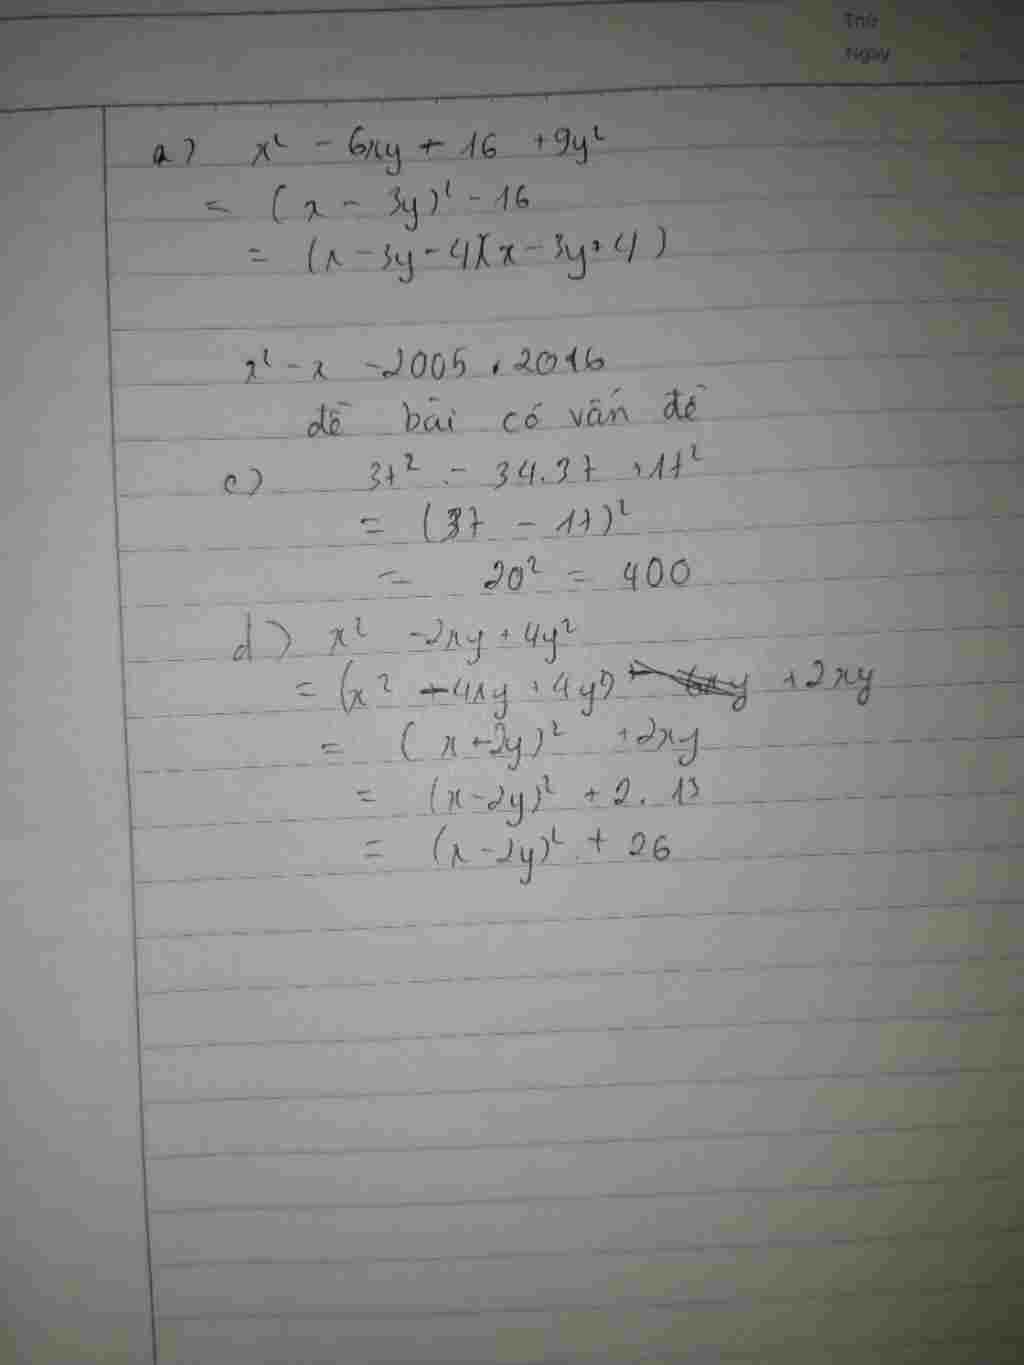 Thứ
Ngày
a) x² - 6xy + 16 + 9y²
= (x - 3y)² - 16
= (x - 3y - 4)(x - 3y + 4)
x² - x - 2005 . 2016
đề bài có vấn đề
c) 37² - 34.37 + 17²
= (37 - 17)²
= 20² = 400
d) x² - 2xy + 4y²
= (x² - 4xy + 4y²) + 2xy
= (x - 2y)² + 2xy
= (x - 2y)² + 2. 13
= (x - 2y)² + 26